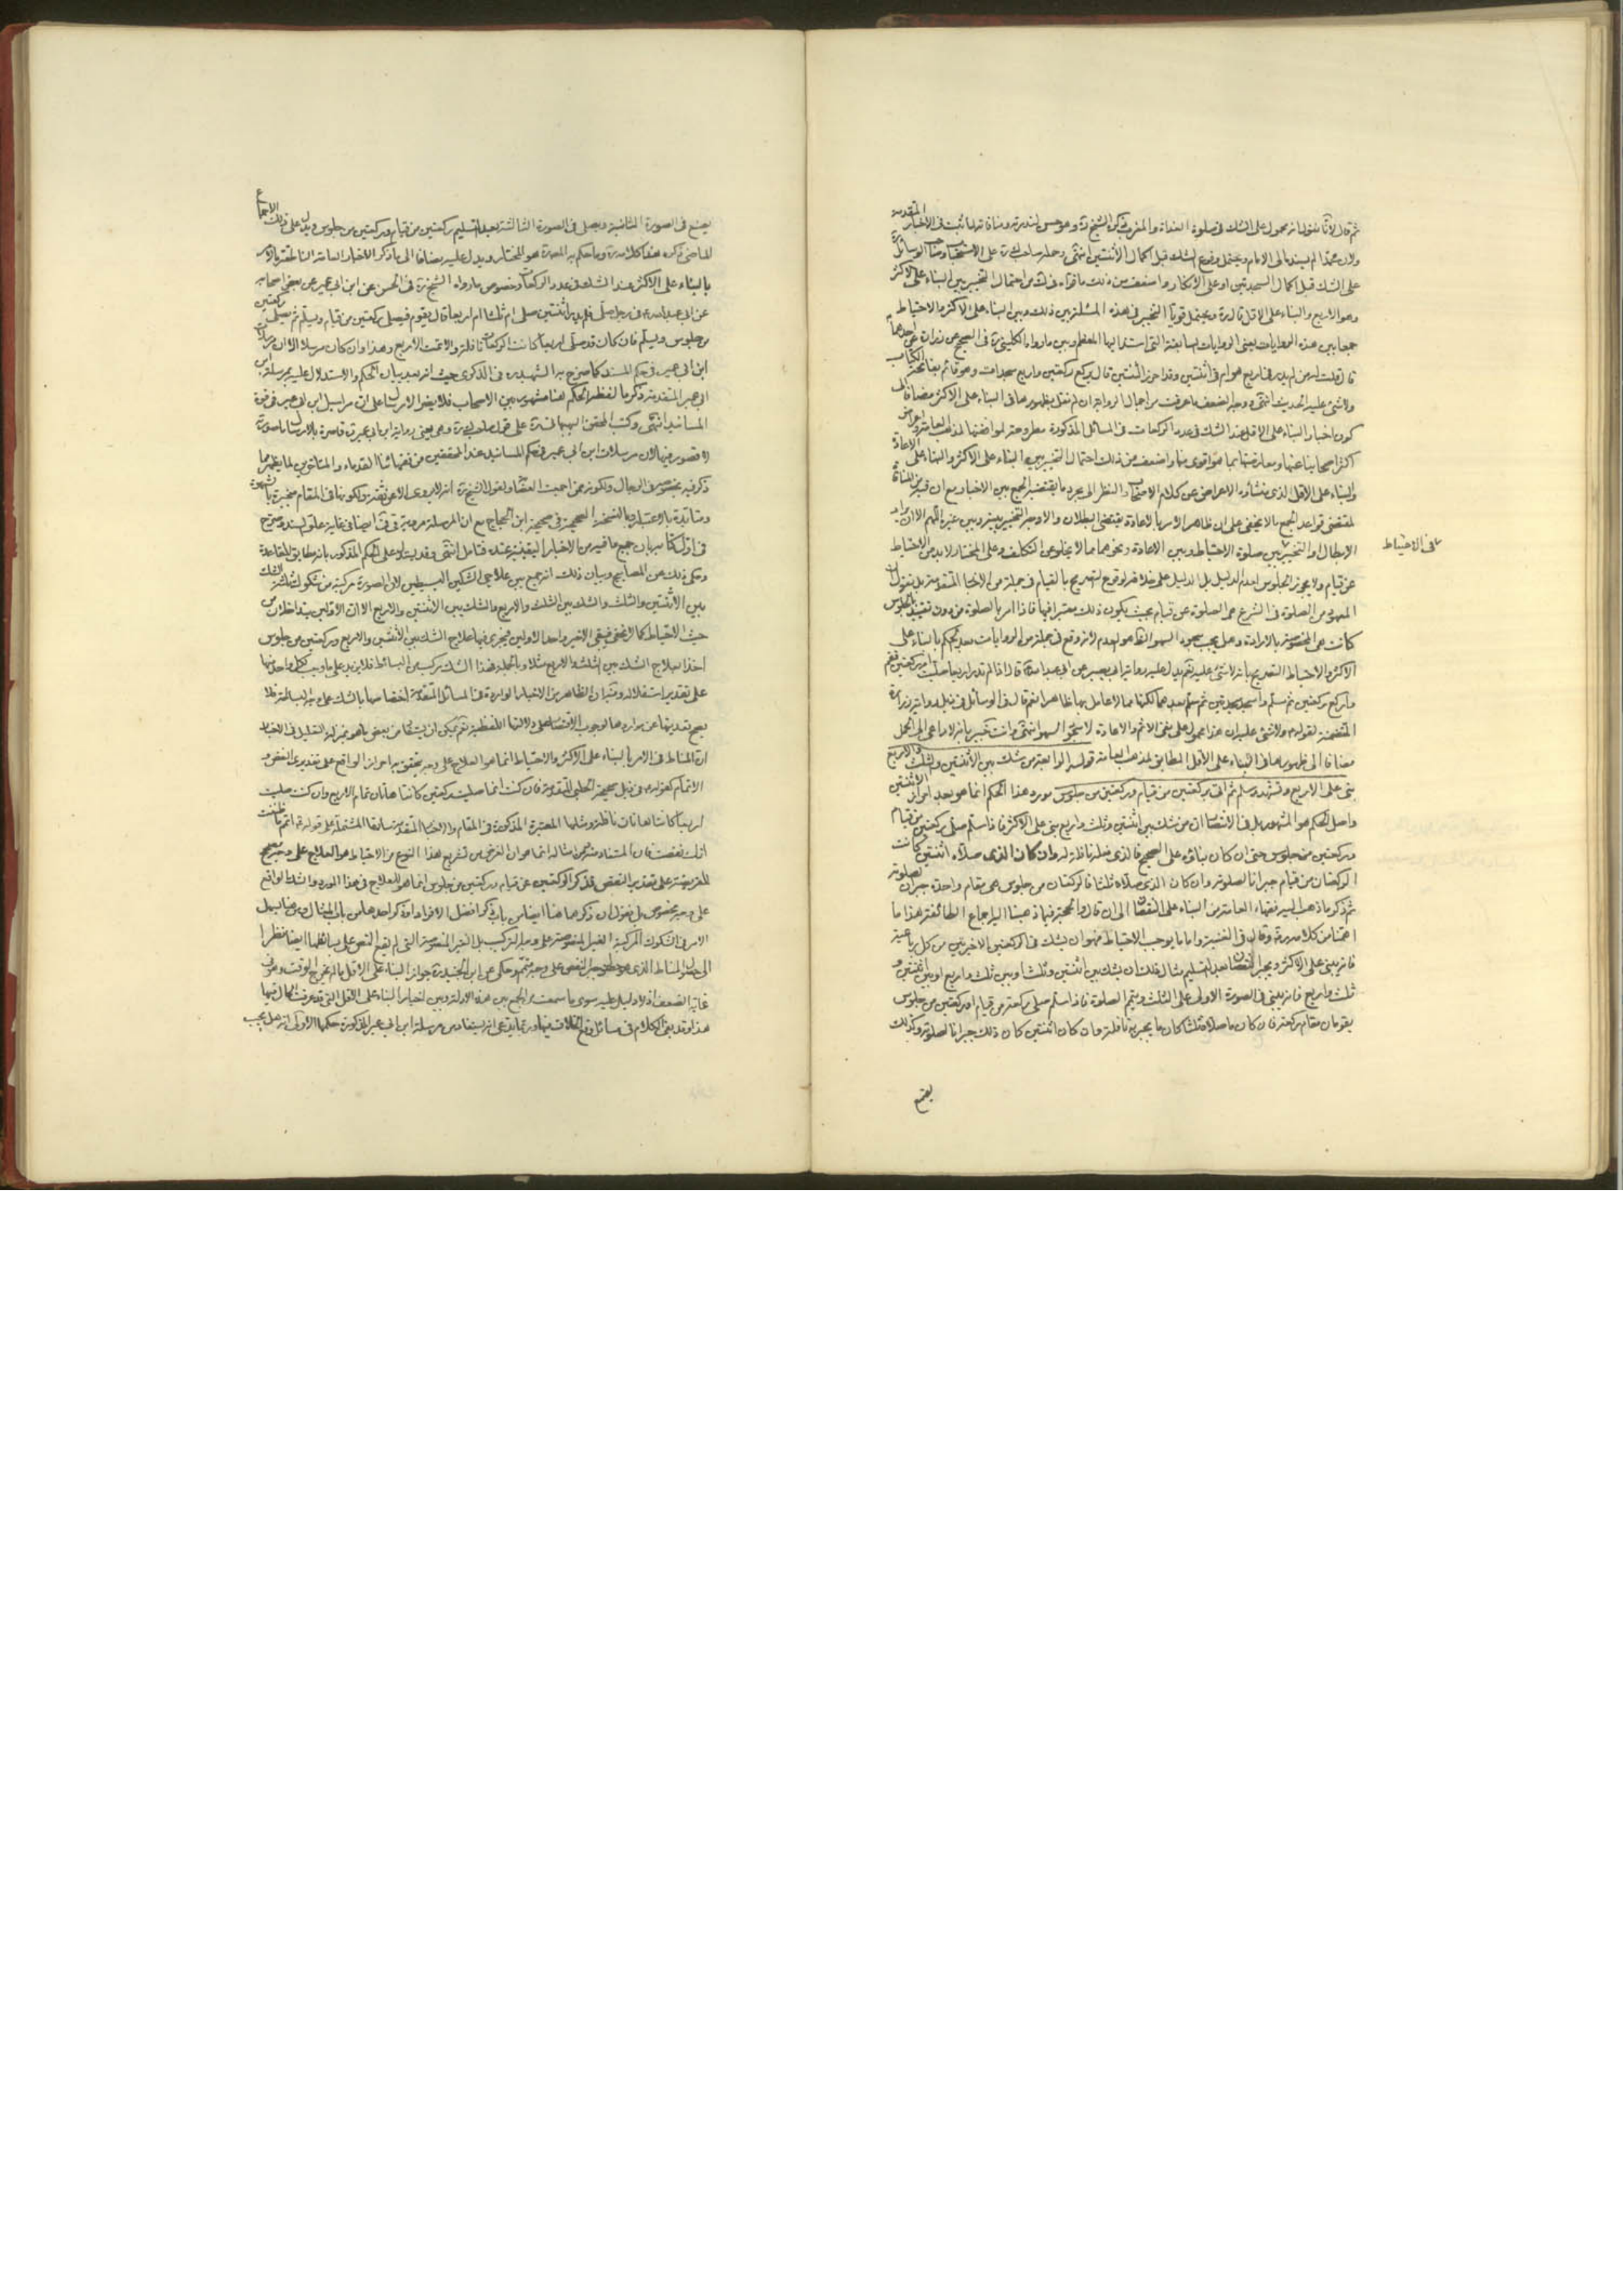 ثم قال لانا نقول انه محمول على الشك فى صلوة الغداة والمغرب ذكره الشيخ ره وهو حسن لندرته ومنافاته لما ثبت فى الاخبار المتقدمة
ولان محمدا لم يسنده الى الامام ويحتمل وقوع الشك قبل اكمال الاثنتين انتهى وحمله صاحب
على الشك قبل اكمال السجدتين او على الانكار واضعف من ذلك ما من احتمال التخيير بين البناء على الاكثر
وهو الاربع والبناء على الاقل قال ره ويحتمل قويا التخيير فى هذه المسئلة بين ذلك وبين البناء على الاكثر والاحتياط
جمعا بين هذه الروايات يعنى الروايات السابقة التى استند اليها المعظم وبين ما رواه الكلينى ره فى الصحيح عن زرارة عن احدهما
قال قلت له من لم يدر فى اربع هو ام فى اثنتين وقد احرز اثنتين قال يركع ركعتين واربع سجدات وهو قائم بفاتحة الكتاب
ولا شئ عليه الحديث انتهى ووجه الضعف ما عرفت من اجمال الرواية ان لم نقل بظهورها فى البناء على الاكثر مضافا الى
كون اخبار البناء على الاقل عند الشك فى عدد الركعات فى المسائل المذكورة مطروحة لموافقتها لمذهب العامة واعراض
اكثر اصحابنا عنها ومعارضتها بما هو اقوى منها واضعف من ذلك احتمال التخيير بين البناء على الاكثر والبناء على الاعادة
والبناء على الاقل الذى منشاؤه الاعراض عن كلام الاصحاب والنظر الى مجرد ما يقتضيه الجمع بين الاخبار مع ان
لمقتضى قواعد الجمع بالا يخفى على ان ظاهر الامر بالاعادة يقتضى البطلان ولا وجه للتخيير بينه وبين غيره اللهم الا ان يراد
الابطال او التخيير بين صلوة الاحتياط وبين الاعادة ونحوهما مما لا يخلو عن التكلف وعلى المختار لا بد من الاحتياط
فى الاحتياط
عن قيام ولا يجوز الجلوس لعدم الدليل بل الدليل على خلافه لوقوع التصريح بالقيام فى جملة من الاخبار المتقدمة بل نقول ان
المعهود من الصلوة فى الشرع هى الصلوة عن قيام بحيث يكون ذلك معتبرا فيها فاذا امر بالصلوة من دون تقييد بالجلوس
كانت هى المخصوصة بالارادة وهل يجب سجود السهو الظاهر العدم لانه وقع فى جملة من الروايات بعد الحكم بالبناء على
الاكثر والاحتياط التصريح بانه لا شئ عليه نعم يدل عليه رواية ابى بصير عن ابى عبد الله قال اذا لم تدر اربعا صليت ام ركعتين فقم
واركع ركعتين ثم سلم واسجد سجدتين ثم سلم بعدهما لكنها مما لا عامل بها ظاهرا نعم قال فى الوسائل فى ذيل رواية زرارة
المتضمنة لقوله ولا شئ عليه ان هذا محمول على نفى الاثم والاعادة لا سجود السهو انتهى وانت خبير بانه لا داعى الى الحمل
مضافا الى ظهورها فى البناء على الاقل المطابق لمذهب العامة قوله الرابعة من شك بين الاثنتين والثلث والاربع
بنى على الاربع وتشهد وسلم ثم اتى بركعتين من قيام وركعتين من جلوس مورد هذا الحكم انما هو بعد احراز الاثنتين
واصل الحكم هو المشهور بل فى الانتصار ان من شك بين اثنتين وثلث واربع بنى على الاكثر فاذا سلم صلى ركعتين من قيام
وركعتين من جلوس حتى ان كان بناؤه على الصحيح فالذى فعله نافلة له وان كان الذى صلاه اثنتين كانت
الركعتان من قيام جبرانا لصلوته وان كان الذى صلاه ثلثا فالركعتان من جلوس هى مقام واحدة جبران لصلوته
ثم ذكر ما ذهب اليه فقهاء العامة من البناء على النقصان الى ان قال والحجة فيما ذهبنا اليه اجماع الطائفة هذا ما
اهمنا من كلامه ره وقال فى الغنية واما ما يوجب الاحتياط فهو ان يشك فى الركعتين الاخيرتين من كل رباعية
فانه يبنى على الاكثر ويجبر النقصان بعد التسليم مثال ذلك ان يشك بين اثنتين وثلث او بين ثلث واربع او بين اثنتين و
ثلث واربع فانه يبنى فى الصورة الاولى على الثلث ويتم الصلوة فاذا سلم صلى ركعة من قيام او ركعتين من جلوس
يقومان مقام ركعة فان كان ما صلاه ثلثا كان ما يجبر به نافلة وان كان اثنتين كان ذلك جبرانا لصلوته وكذلك
يصنع
يصنع فى الصورة الثانية ويصلى فى الصورة الثالثة بعد التسليم ركعتين من قيام وركعتين من جلوس ويدل على ذلك الاجماع
الماضى ذكره هذا كلامه ره وما حكم به المصنف ره هو المختار ويدل عليه مضافا الى ما ذكر الاخبار العامة الناطقة بالامر
بالبناء على الاكثر عند الشك فى عدد الركعات وخصوص ما رواه الشيخ ره فى الحسن عن ابن ابى عمير عن بعض اصحابه
عن ابى عبد الله فى رجل صلى فلم يدر اثنتين صلى ام ثلثا ام اربعا قال يقوم فيصلى ركعتين من قيام ويسلم ثم يصلى ركعتين
من جلوس ويسلم فان كان قد صلى اربعا كانت الركعات نافلة والا تمت الاربع وهذا وان كان مرسلا الا ان مرسلات
ابن ابى عمير فى حكم المسند كما صرح به الشهيد ره فى الذكرى حيث انه بعد بيان الحكم والاستدلال عليه بمرسلة ابن
ابى عمير المتقدمة ذكر ما لفظه والحكم هنا مشهور بين الاصحاب فلا يضر الارسال على ان مراسيل ابن ابى عمير فى قوة
المسانيد انتهى وكتب المحقق البهبهانى ره على قول صاحب ك ره وهى يعنى رواية ابن ابى عمير قاصرة بالارسال ما صورته
لا قصور فيها لان مرسلات ابن ابى عمير فى حكم المسانيد عند المحققين من فقهائنا القدماء والمتاخرين لما يظهر مما
ذكر فيه بخصوصه فى الرجال ولكونه ممن اجمعت العصابة ولقول الشيخ ره انه لا يروى الا عن ثقة ولكونها فى المقام منجبرة بالشهرة
فى اول كتابه بان جميع ما فيه من الاخبار اليقينية عنده فتامل انتهى وقد يستدل على الحكم المذكور بانه مطابق للقاعدة
وحكى ذلك عن المصابيح وبيان ذلك انه جمع بين علاجى الشكين البسيطين لان الصورة مركبة من شكوك ثلثة الشك
بين الاثنتين والثلث والشك بين الثلث والاربع والشك بين الاثنتين والاربع الا ان الاولين يتداخلان من
حيث الاحتياط كما لا يخفى فيبقى الاخير واحد الاولين فيجرى فيها علاج الشك بين الاثنتين والاربع وركعتين من جلوس
اخذا بعلاج الشك بين الثلث والاربع مثلا وبالجملة فهذا الشك مركب من البسائط فلا يزيد على ما وجب لكل واحد منها
على تقدير استقلاله وفيه ان الظاهر من الاخبار الواردة فى المسائل المتقدمة اختصاصها بالشك على وجه البساطة فلا
يصح تعديتها عن مواردها لوجوب الاقتصار على دلالتها اللفظية نعم يمكن ان يستفاد من بعض ما هو بمنزلة التعليل فى الاخبار
ان المناط فى الامر بالبناء على الاكثر والاحتياط انما هو العلاج على وجه يتحقق به احراز الواقع على تقديرى النقص و
الاتمام كقوله فى ذيل صحيحة الحلبى المتقدمة فان كنت انما صليت ركعتين كانتا هاتان تمام الاربع وان كنت صليت
اربعا كانتا هاتان نافلة ومثلها المعتبرة المذكورة فى المقام والاخبار المتقدمة سابقا المشتملة على قوله اتم ما ظننت
انك نقصت فان المستفاد منها ومن امثاله انما هو ان الغرض من تشريع هذا النوع من الاحتياط هو العلاج على وجه مصحح
للفريضة على تقدير النقص فذكر الركعتين عن قيام وركعتين من جلوس انما هو للعلاج فى هذا المورد والشك الواقع
على وجه مخصوص بل نقول ان ذكرهما هنا ايضا من باب ذكر افضل الافراد او ذكر احدهما من باب المثال ومن هنا يسهل
الامر فى الشكوك المركبة الغير المنصوصة على وجه التركيب بل الغير المنصوصة التى لم يقع النص على بسائطها ايضا نظرا
الى حصول المناط الذى هو العلاج النقص على وجه متمم وحكى عن ابن الجنيد ره جواز البناء على الاقل ما لم يخرج الوقت وهو فى
غاية الضعف اذ لا دليل عليه سوى ما سمعت من الجمع بين هذه الادلة وبين اخبار البناء على الاقل التى قد عرفت الحال فيها
هذا وقد بقى الكلام فى مسائل وقع الخلاف فيها وربما يدعى انه يستفاد من مرسلة ابن ابى عمير المذكورة حكمها الاولى انه هل يجب